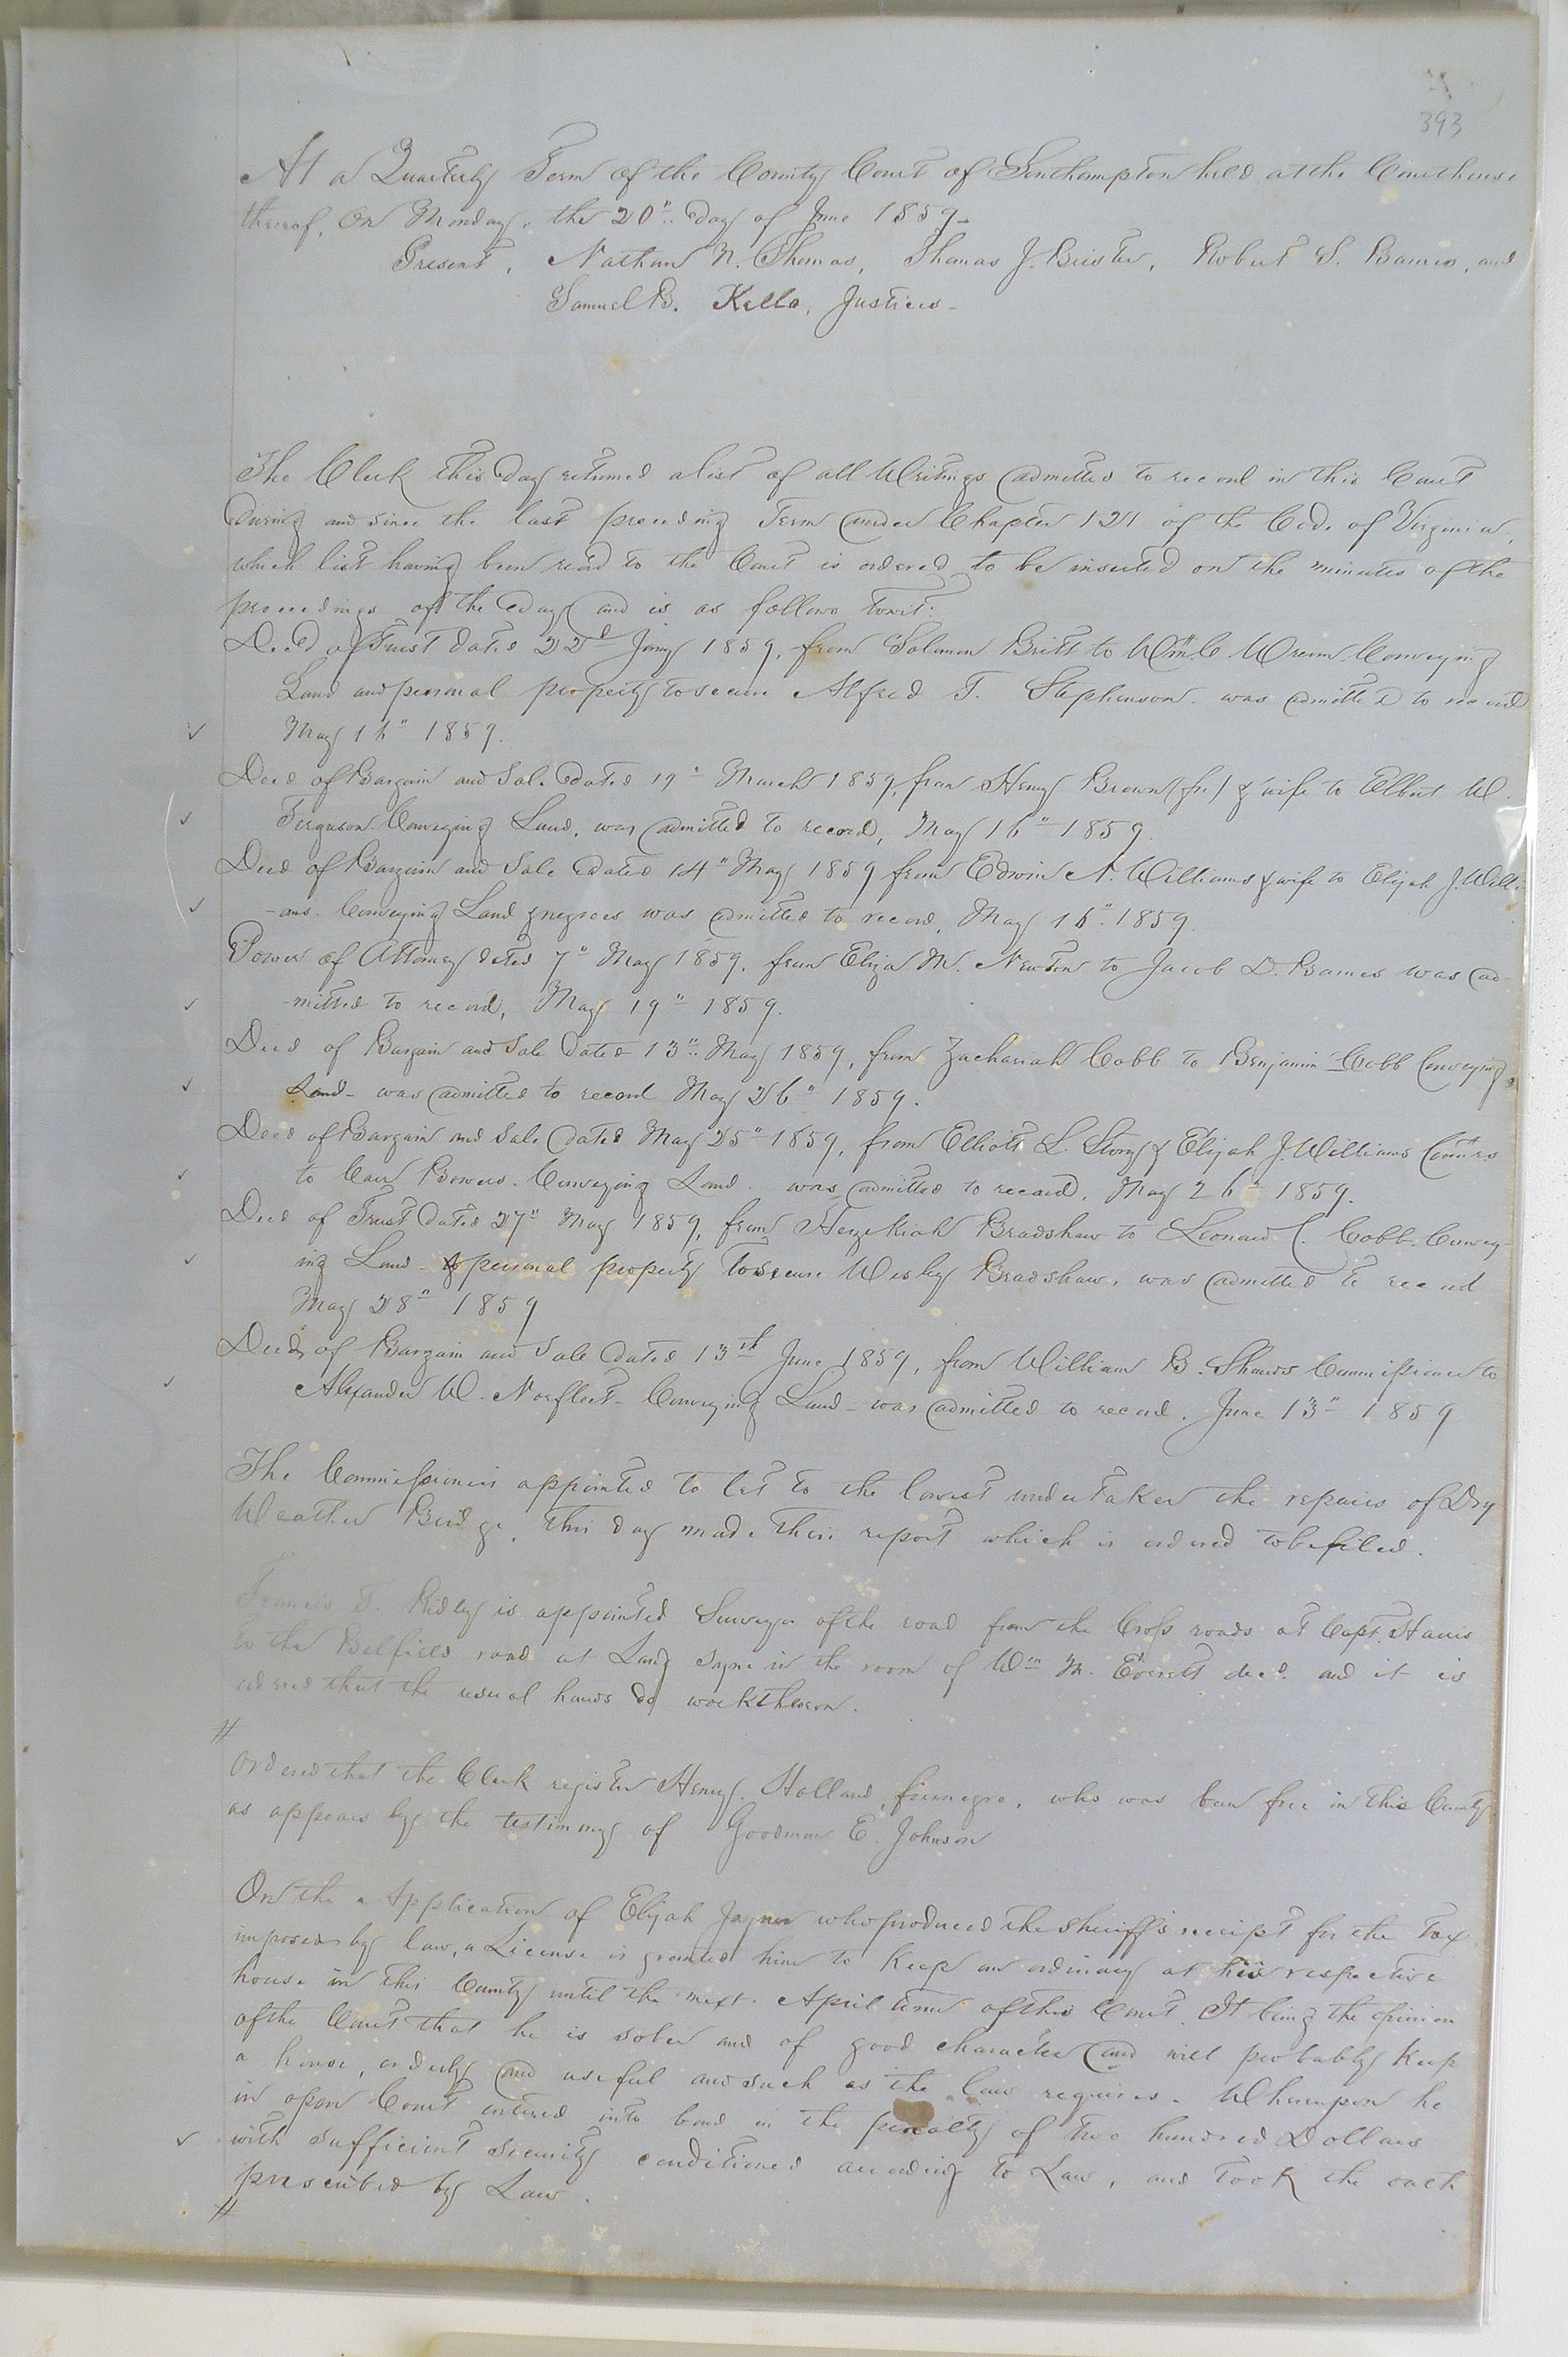 393
At a Quarterly Term of the County Court of Southampton held at the Courthouse
thereof, On Monday, the 20" day of June 1859_
Present, Nathan N. Thomas, Thomas J. Brister, Robert S. Barnes, and
Samuel B. Kello, Justices_
The Clerk this day returned a list of all Writings admitted to record in this Court
During and since the last preceding Term under Chapter 121 of the Code of Virginia,
which list having been read to the Court is ordered to be inserted on the minutes of the
proceedings of the day and is as follows towit:
Deed of Trust dated 22d Jany 1859, from Solomon Britt to Wm. C Wrenn Conveying
Land and personal property to secure Alfred T. Stephenson. was admitted to record
May 16" 1859.
Deed of Bargain and Sale dated 19" March 1859, from Henry Brown (fn) & wife to Elbert W.
Ferguson Conveying Land, was admitted to record, May 16" 1859.
Deed of Bargain and Sale dated 14" May 1859 from Edwin N. Williams & wife to Elijah J. Willi-
-ams. Conveying Land & negroes was admitted to record, May 16" 1859.
Power of Attorney dated 7" May 1859, from Eliza M. Newton to Jacob D. Barnes was ad-
-mitted to record, May 19" 1859.
Deed of Bargain and Sale dated 13" May 1859, from Zachariah Cobb to Benjamin Cobb Conveying
Land_ was admitted to record May 26" 1859.
Deed of Bargain and Sale dated May 25" 1859, from Elliott L. Story & Elijah J. Williams Commrs
to Carr Bowers. Conveying Land. was admitted to record, May 26" 1859.
Deed of Trust dated 27" May 1859, from Hezekiah Bradshaw to Leonard C. Cobb. Convey-
ing Land & personal property to secure Wesley Bradshaw, was admitted to record
May 28" 1859
Deed of Bargain and Sale dated 13th June 1859, from William B. Shands Commissioner to
Alexander W. Norfleet_ Conveying Land_ was admitted to record. June 13" 1859
The Commissioners appointed to let to the lowest undertaker the repairs of Dry
Weather Bridge, this day made their report which is ordered to be filed.
Francis T. Ridley is appointed Surveyor of the road from the Cross roads at Capt. Harris
to the Belfield road at in the room of Wm M. Everett decd. and it is
ordered that the usual hands do work thereon.
#
Ordered that the Clerk register Henry Holland, free negro, who was born free in this County
as appears by the testimony of Goodman E. Johnson
On the Application of Elijah Joyner who produced the sheriff's receipt for the tax
imposed by law, a License is granted him to Keep an ordinary at his respective
house in this County until the next April term of this Court. It being the opinion
of the Court that he is sober and of good character and will probably Keep
a house, orderly and useful and such as the law requires. Whereupon he
in open Court entered into bond in the penalty of two hundred Dollars
with sufficient security conditioned according to Law, and took the oath
prescribed by Law.
#